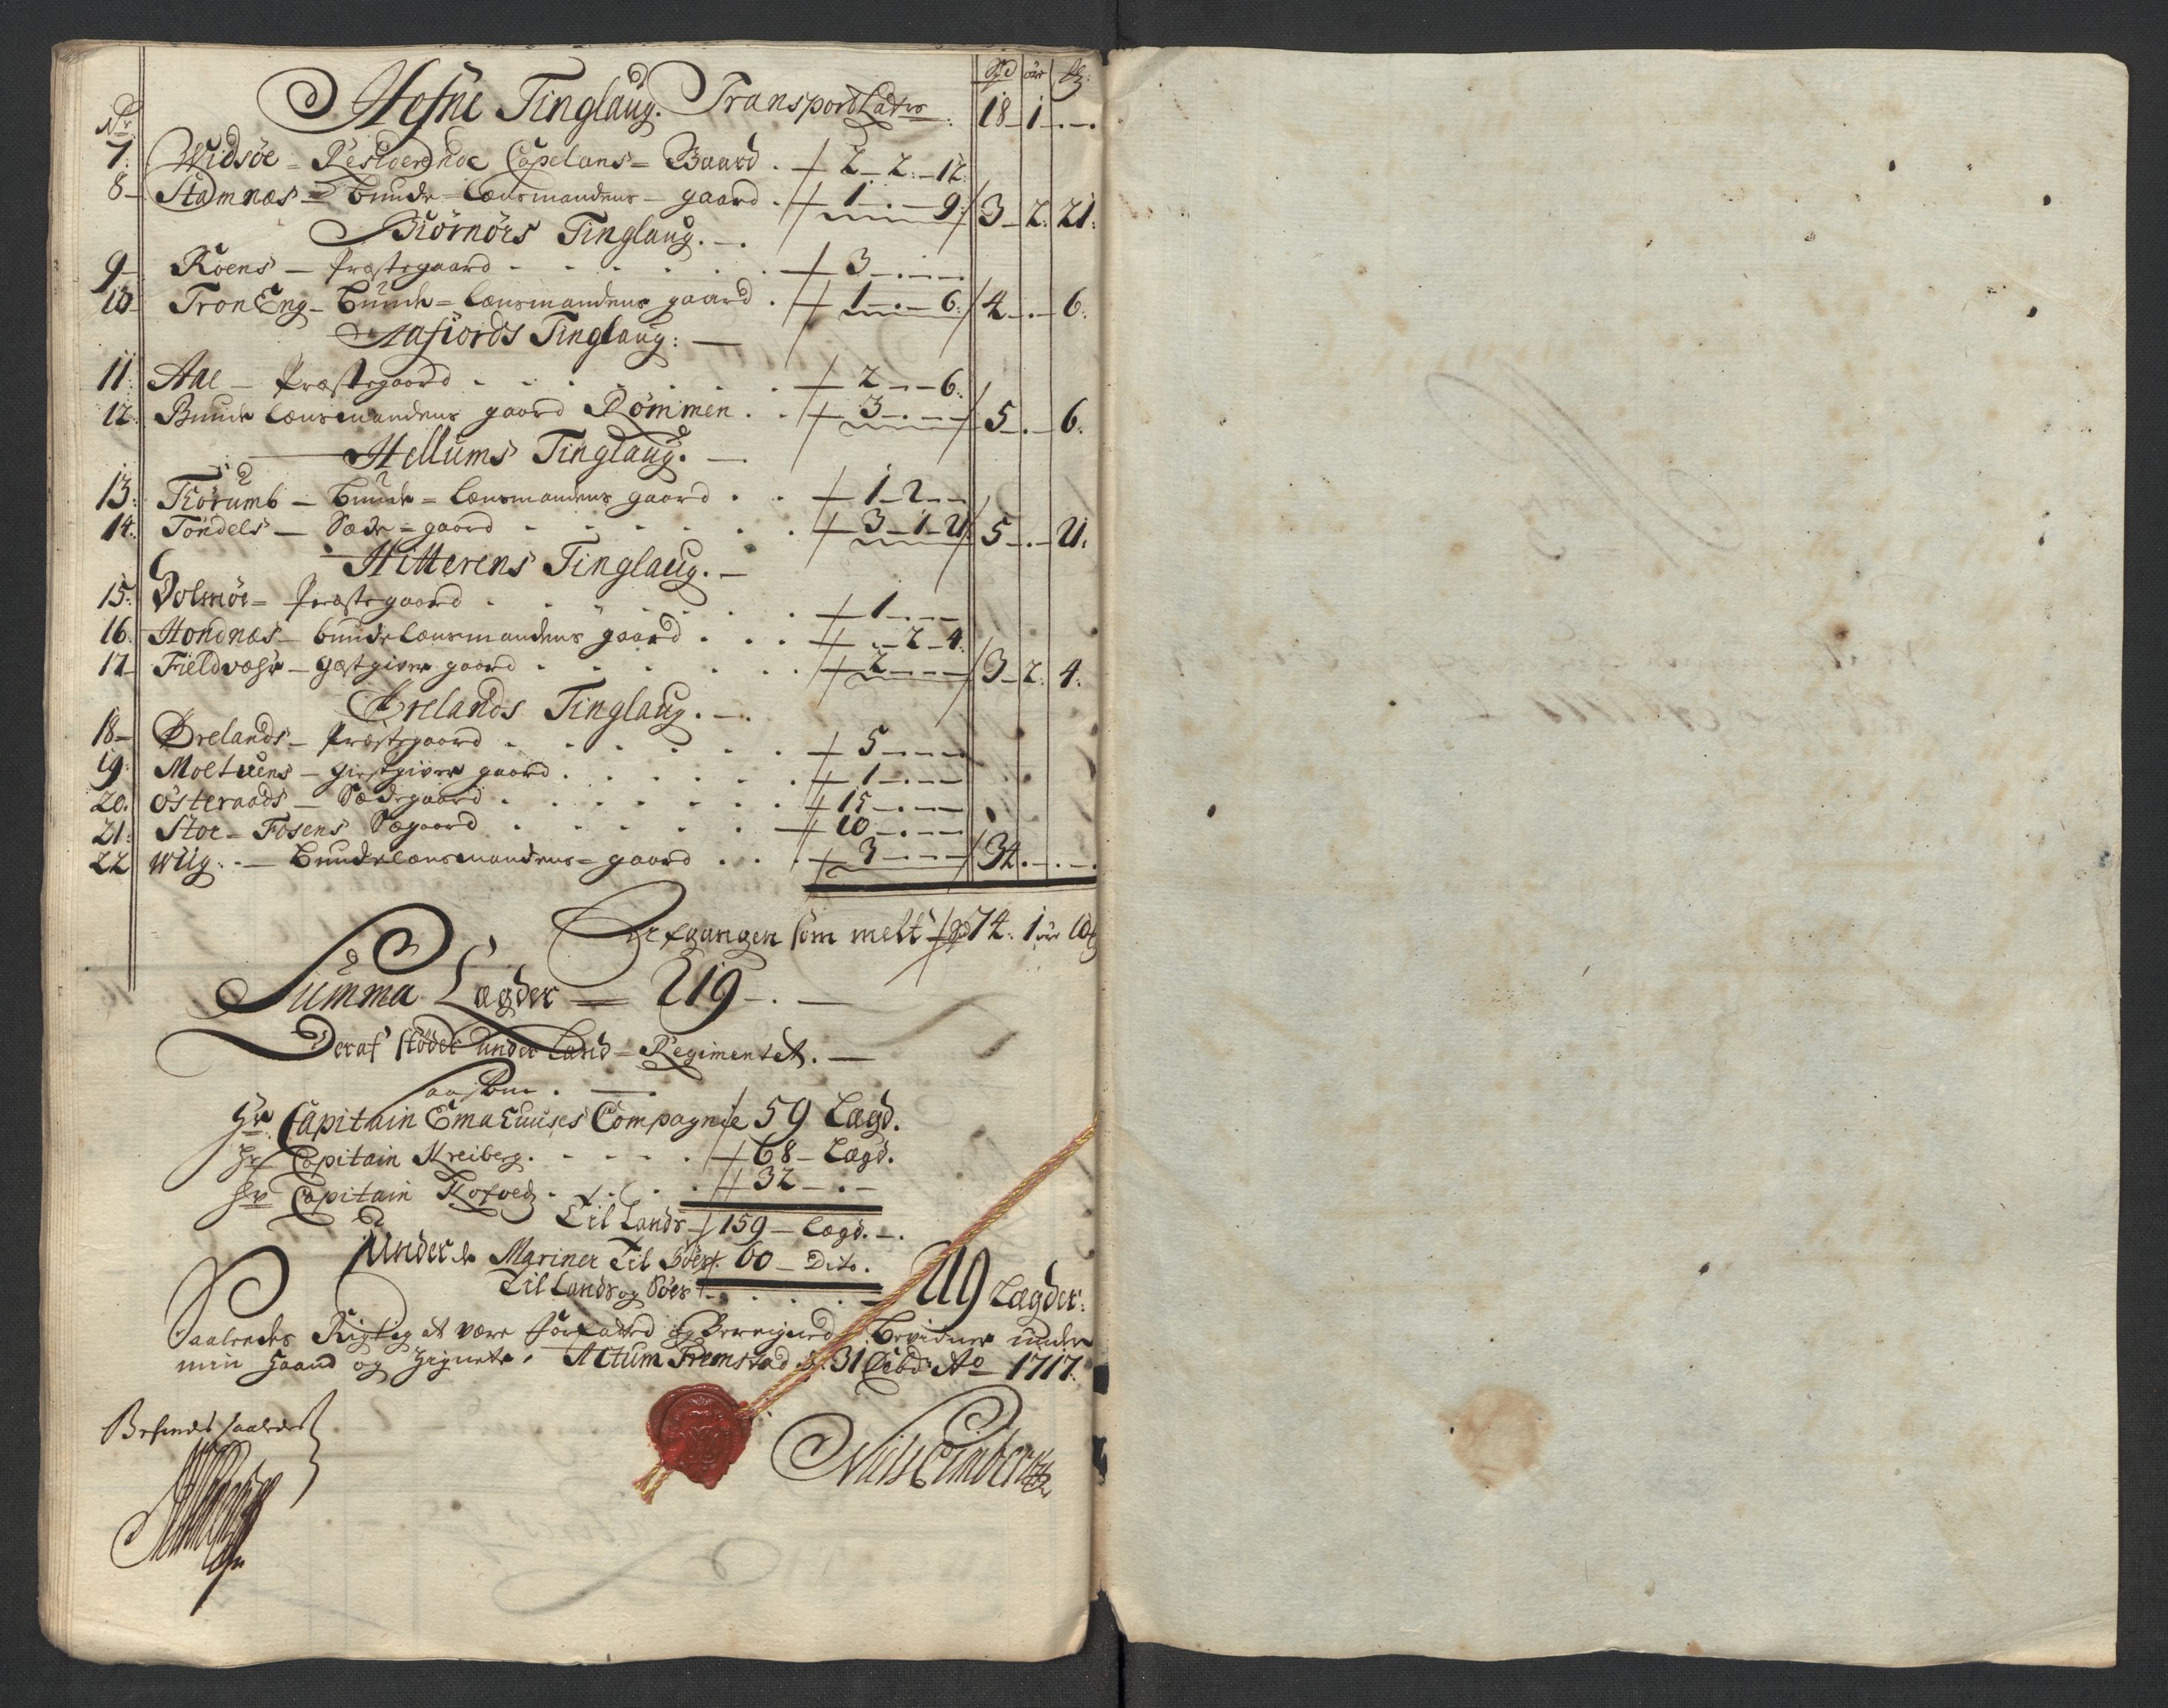 Spd ør g:
Hefne Tinglaug. Transport Latr. 18 - 1 - . -
No
7: Widsöe - Residerende Capelans - Gaard . 2 - 2 - 12
8 - Stamnæs - Bunde - Lænsmandens - gaard . 1 - . - 9: 3 - 2: 21:
Biörnörs Tinglaug. -
9 - Roens - Præstegaard - 3 - . - .
10 TronEng - Bunde - lænsmandens gaard . 1 - . - 6: 4 - . - 6:
Aafiords Tinglaug: -
11: Aae - Præstegaard - 2 - - 6:
12: Bunde lænsmandens gaard Römmen . 3 - . - - 5 - . - 6:
Hellums Tinglaug. -
13: Körumb - Bunde - lænsmandens gaard . 1 - 2 - -
14: Töndels - Sæde - gaard - 3 - 1 - 21 5 - . - 21:
Hitterens Tinglaug. -
15: Dolmöe - Præstegaard . 1 - . - -
16 Hondnæs - bundelænsmandens gaard . - . - 2 - 4:
17 - Fieldvær - gæstgiver gaard - 2 - - - 3 - 2: 4:
Ørelands Tinglaug. -
18 - Ørelands - Præstegaard - 5 - - -
19: - giestgiver gaard . 1 - . - -
20. Österaads - Sædegaard . 15 - . - -
21: Stoe - Fosens Sægaard 10 - . - -
22 Wiig: - Bundelænsmandens - gaard . 3 - - - 34. - . - .
Afgangen som melt Spd 74: 1 ør 10
Summa Lægder = 219 - . -
Deraf støder under Land - Regimentet. -
Saasom . -
Hr: Capitain Compagnie 59 Lægd.
Hr Capitain Kreiberg . 68 - Lægd.
Hr Capitain Kofoed . 32 - . -
Til Lands 159 - Lægd. - .
Under de Mariner Til Söes 60 - Dito.
Til Lands og Söes . 219 Lægder:
Saaledes Rigtig at være forfattet og Beregned, Bevidner under
min Haand og Zignete. Actum Fremstad d. 31 Decbr Ao 1717.
Befindes saaledes
Niels Eimber